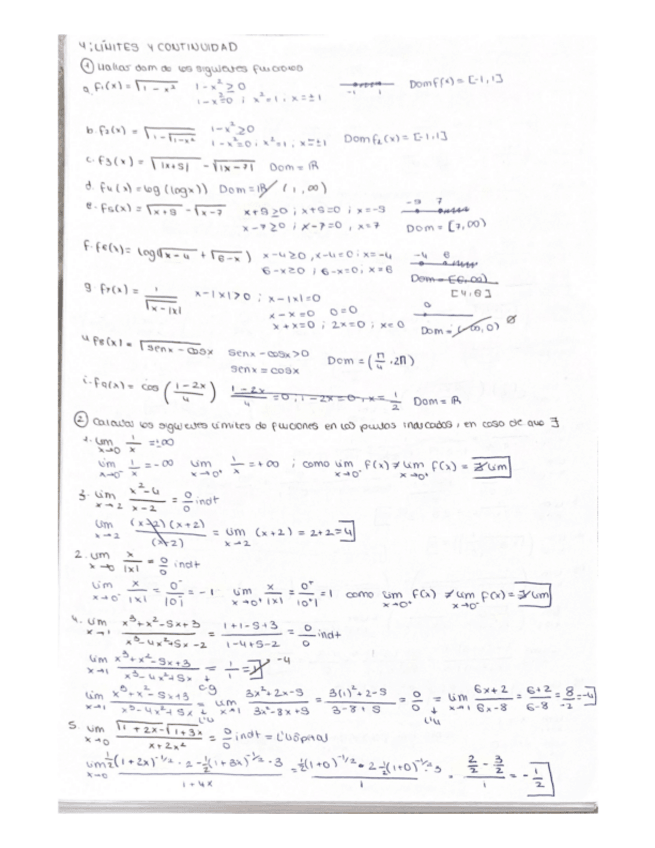 4: LÍMITES Y CONTINUIDAD
① Hallar dom de los siguientes funciones
a. f₁(x) = √(1 - x²)   1 - x² ≥ 0   -1  1   Dom f(x) = [-1, 1]
1 - x² = 0 ; x² = 1 ; x = ±1
b. f₂(x) = √(1 - √(1-x²))   1 - x² ≥ 0
1 - x² = 0 ; x² = 1, x = ±1   Dom f₂(x) = [-1, 1]
c. f₃(x) = √|x+5| - √|x-7|   Dom = ℝ
d. f₄(x) = log (log x))   Dom = (1, ∞)
e. f₅(x) = √(x+9) - √(x-7)   x+9 ≥ 0 ; x+9 = 0 ; x = -9   -9  7
x-7 ≥ 0 ; x-7 = 0, x = 7   Dom = [7, ∞)
f. f₆(x) = log(√(x-4) + √(6-x))   x-4 ≥ 0, x-4 = 0 ; x = -4   -4  6
6-x ≥ 0 ; 6-x = 0, x = 6   Dom = (6, ∞)
[4, 6]
g. f₇(x) = 1/√(x-|x|)   x - |x| > 0 ; x - |x| = 0   0
x - x = 0   0 = 0
x + x = 0 ; 2x = 0 ; x = 0   Dom = (-∞, 0) ∅
f₈(x) = √(senx - cosx)   senx - cosx > 0   Dom = (π/4 · 2π)
senx = cosx
i. f₉(x) = cos ((1-2x)/4)   (1-2x)/4 = 0 ; 1-2x = 0, x = 1/2   Dom = ℝ
② Calcular los siguientes límites de funciones en los puntos indicados, en caso de que ∃
1. lim x→0 1/x = ±∞
lim x→0⁻ 1/x = -∞   lim x→0⁺ 1/x = +∞ ; como lim x→0⁻ f(x) ≠ lim x→0⁺ f(x) = ∄ lim
3. lim x→2 (x²-4)/(x-2) = 0/0 indt
lim x→2 (x-2)(x+2)/(x-2) = lim x→2 (x+2) = 2+2 = 4
2. lim x→0 x/|x| = 0/0 indt
lim x→0⁻ x/|x| = 0⁻/|0⁻| = -1   lim x→0⁺ x/|x| = 0⁺/|0⁺| = 1   como lim x→0⁺ f(x) ≠ lim x→0⁻ f(x) = ∄ lim
4. lim x→1 (x³+x²-5x+3)/(x³-4x²+5x-2) = (1+1-5+3)/(1-4+5-2) = 0/0 indt
lim x→1 (x³+x²-5x+3)/(x³-4x²+5x) = 1/1 = 1   -4
lim x→1 (x³+x²-5x+3)/(x³-4x²+5x) = L'H lim x→1 (3x²+2x-5)/(3x²-8x+5) = (3(1)²+2-5)/(3-8+5) = 0/0 = L'H lim x→1 (6x+2)/(6x-8) = (6+2)/(6-8) = 8/-2 = -4
5. lim x→0 (√(1+2x) - √(1+3x))/(x+2x²) = 0/0 indt = L'Hôpital
lim x→0 (½(1+2x)^(-1/2) · 2 - ½(1+3x)^(-1/2) · 3)/(1+4x) = (½(1+0)^(-1/2) · 2 - ½(1+0)^(-1/2) · 3)/1 = (2/2 - 3/2)/1 = -1/2